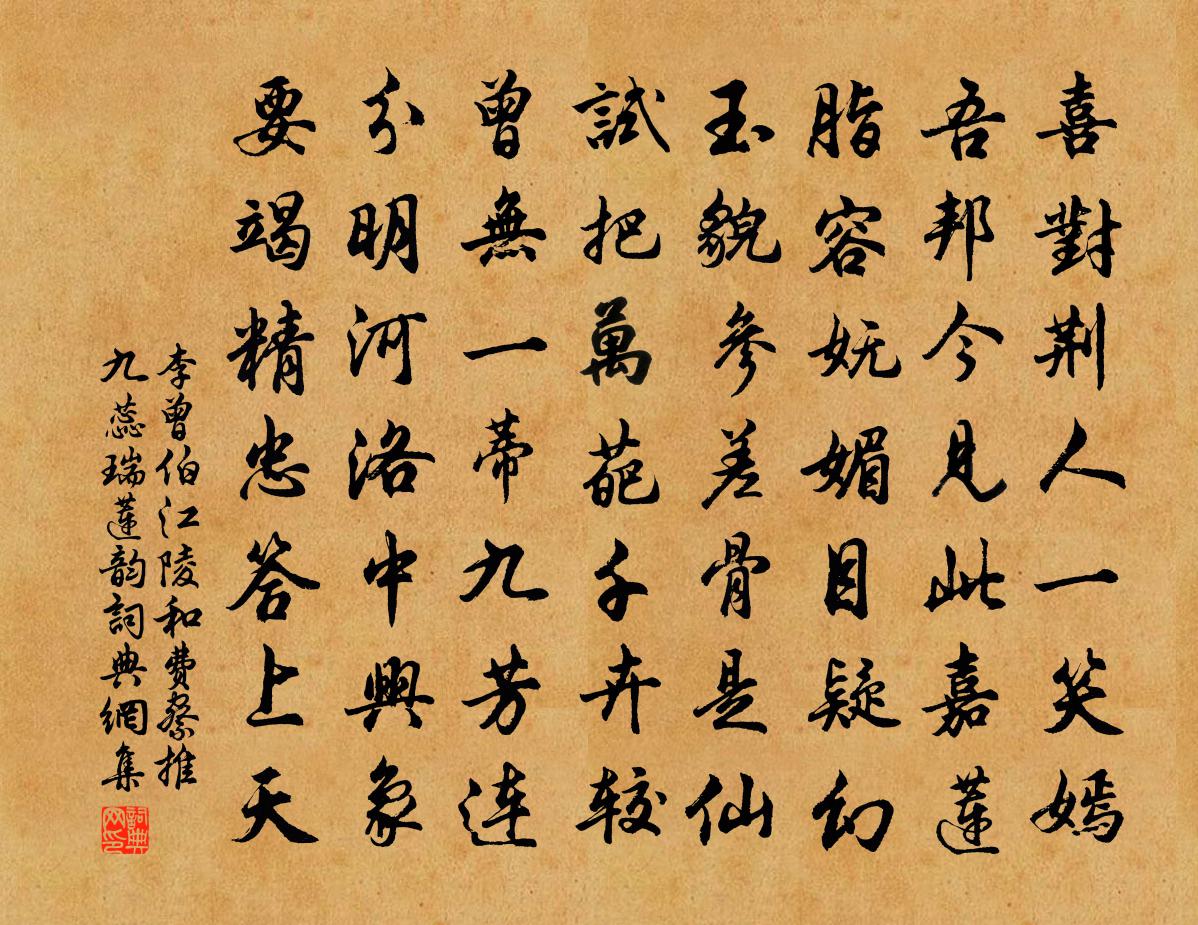 喜對荆人一笑嫣
吾邦今見此嘉蓮
脂容妩媚目疑幻
玉貌參差骨是仙
試把萬葩千卉較
曾無一蒂九芳連
分明河洛中興象
要竭精忠答上天
李曾伯江陵和費察推
九蕊瑞蓮韵詞典網集
詞典
网印